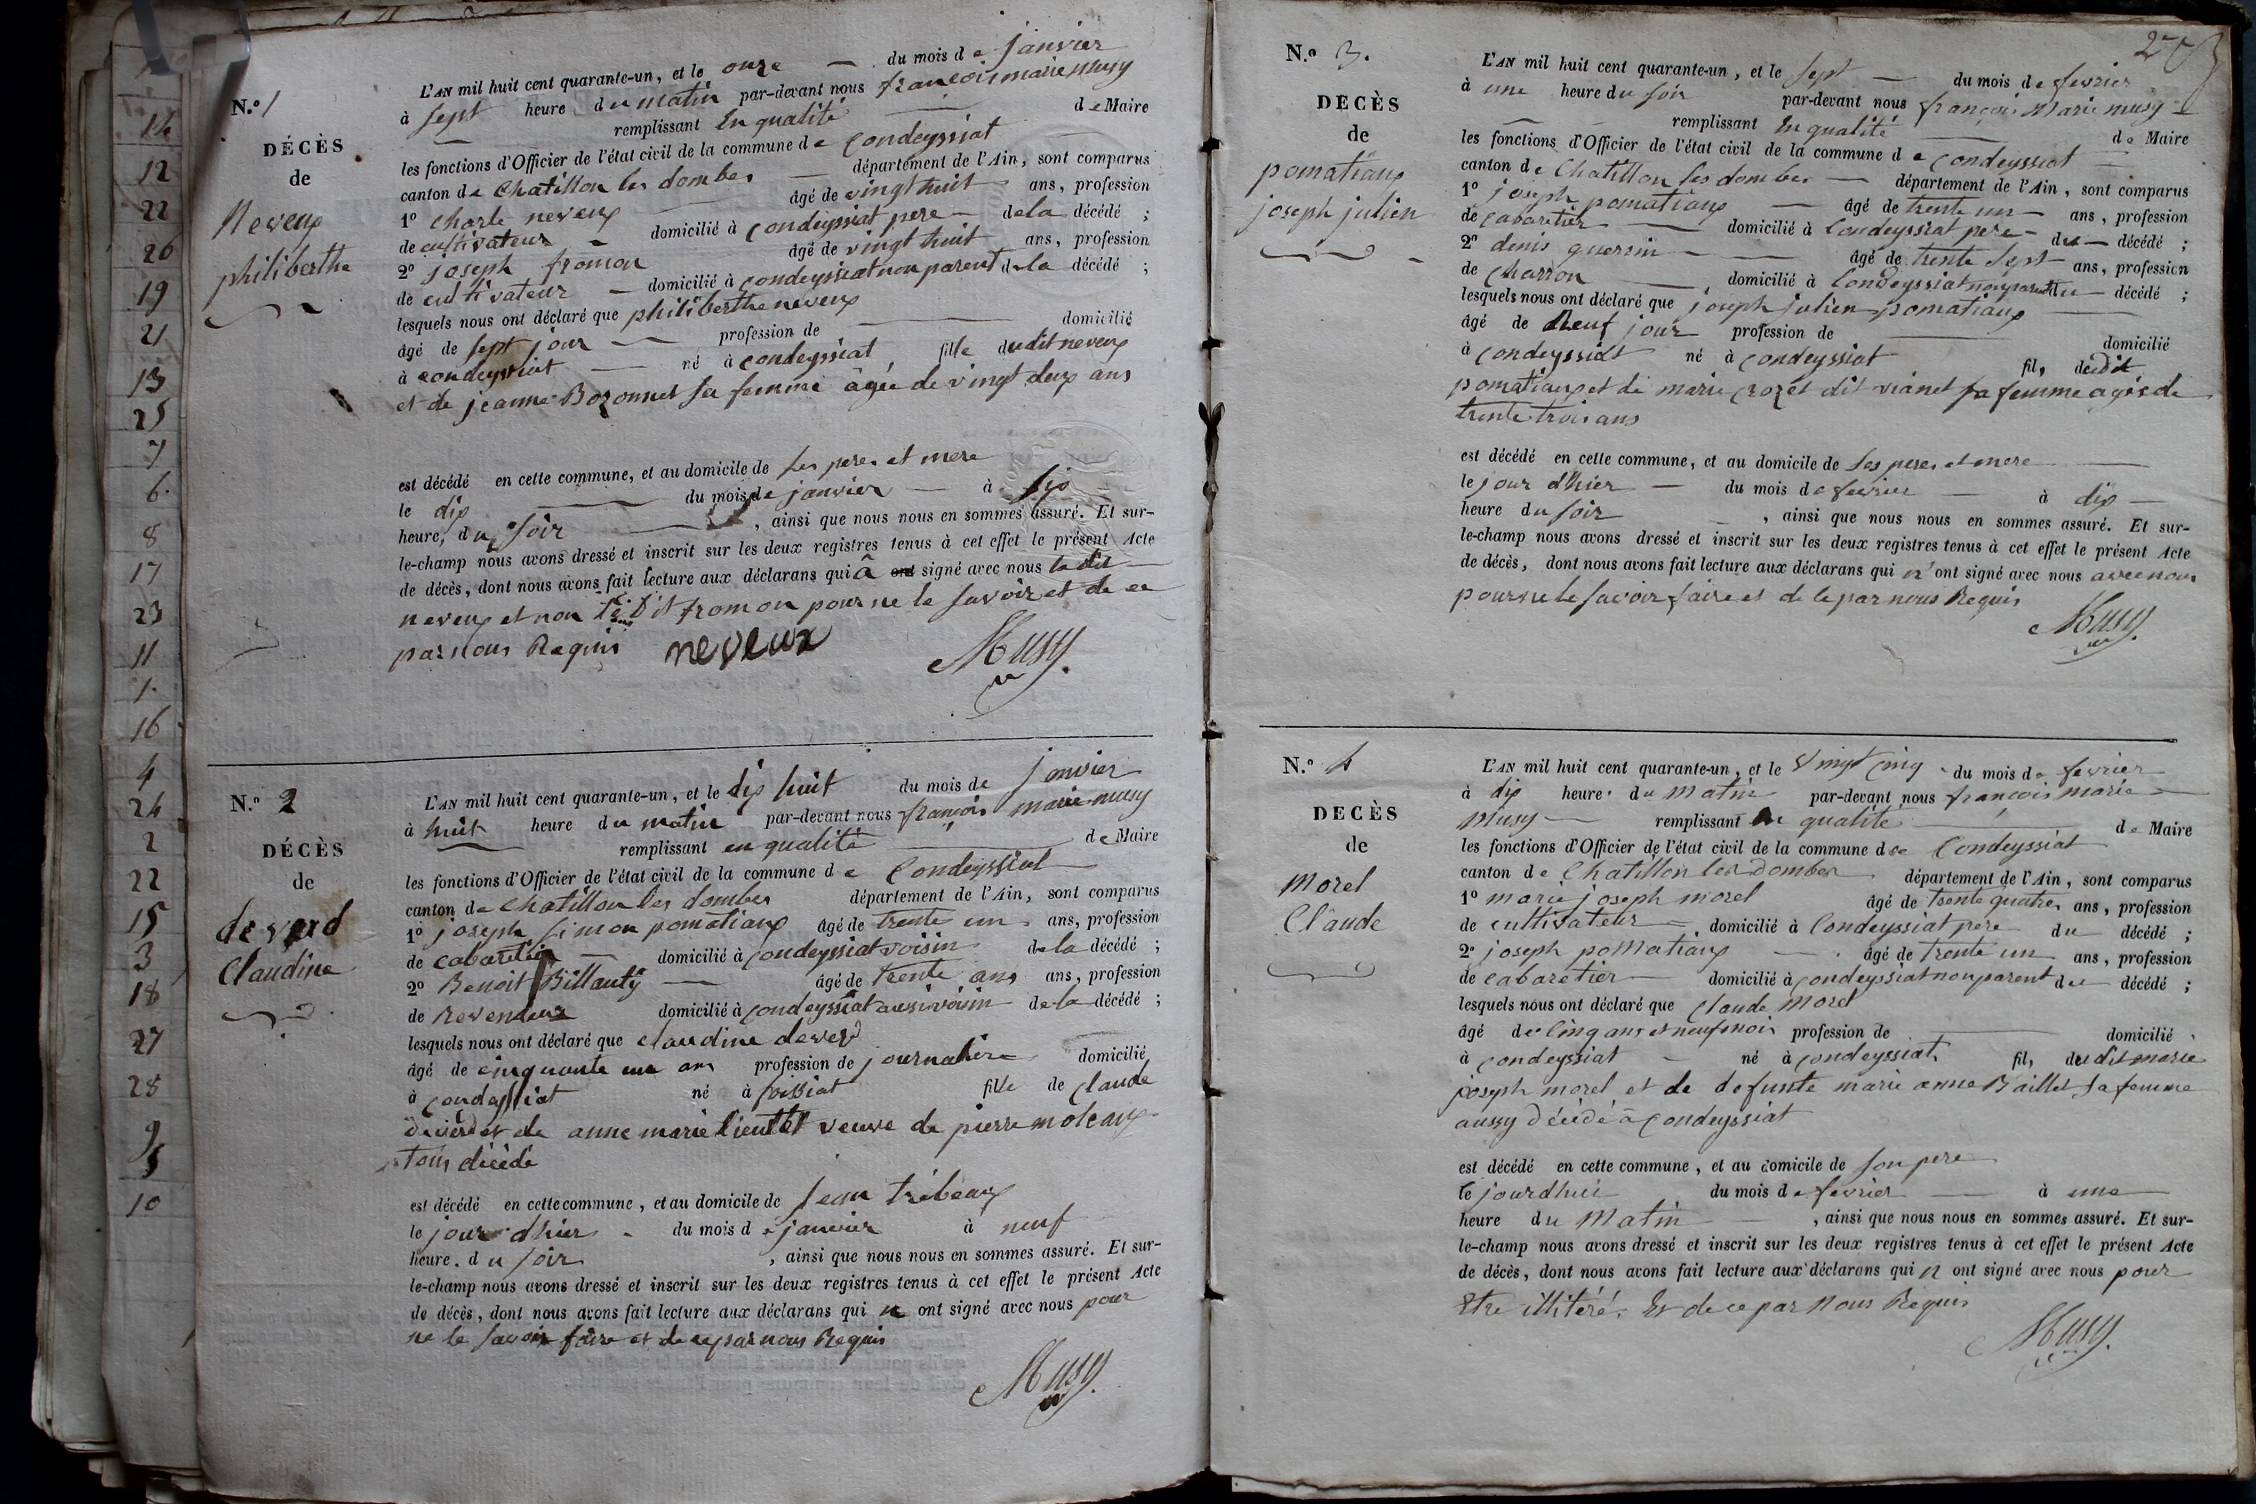 14
12
22
26
19
21
13
25
7
6.
8
17
23
11
1.
16
4
24
2
22
15
3
18
27
28
9
5
10
N.º 1
DÉCÈS
de
Neveux
philiberthe
L'AN mil huit cent quarante-un, et le onze du mois de janvier
à sept heure du matin par-devant nous françois marie Musy
remplissant En qualité de Maire
les fonctions d'Officier de l'état civil de la commune de Condeyssiat
canton de Chatillon les dombes département de l'Ain, sont comparus
1º Charle neveux âgé de vingt huit ans, profession
de cultivateur domicilié à Condeyssiat pere de la décédé ;
2º joseph fromon âgé de vingt huit ans, profession
de cultivateur domicilié à Condeyssiat non parent de la décédé ;
lesquels nous ont déclaré que philiberthe neveux
âgé de sept jour profession de domicilié
à condeyssiat né à Condeyssiat fille dudit neveux
et de jeanne Bozonnet sa femme âgée de vingt deux ans
est décédé en cette commune, et au domicile de ses peres et mere
le dix du mois de janvier à six
heure, du soir , ainsi que nous nous en sommes assuré. Et sur-
le-champ nous avons dressé et inscrit sur les deux registres tenus à cet effet le présent Acte
de décès, dont nous avons fait lecture aux déclarans qui a ont signé avec nous le dit
neveux et non le Dit fromon pour ne le savoir et de ce
par nous Requis neveux Musy
N.º 2
DÉCÈS
de
deverd
Claudine
L'AN mil huit cent quarante-un, et le dix huit du mois de janvier
à huit heure du matin par-devant nous françois marie musy
remplissant en qualité de Maire
les fonctions d'Officier de l'état civil de la commune de Condeyssiat
canton de Chatillon les dombes département de l'Ain, sont comparus
1º joseph simon pomatiaux âgé de trente un ans, profession
de cabaretier domicilié à Condeyssiat voisin de la décédé ;
2º Benoit Billauty âgé de trente ans ans, profession
de revendeur domicilié à condeyssiat aussi voisin de la décédé ;
lesquels nous ont déclaré que claudine deverd
âgé de cinquante un ans profession de journalière domicilié
à condeyssiat né à fille de claude
deverd et de anne marie veuve de pierre
tous décédé
est décédé en cette commune, et au domicile de jean trébeaux
le jour d'hier du mois de janvier à neuf
heure. du soir , ainsi que nous nous en sommes assuré. Et sur-
le-champ nous avons dressé et inscrit sur les deux registres tenus à cet effet le présent Acte
de décès, dont nous avons fait lecture aux déclarans qui n ont signé avec nous pour
ne le savoir faire et de ce par nous Requis
Musy
203
N.º 3.
DECÈS
de
pomatiaux
joseph julien
L'AN mil huit cent quarante-un, et le sept du mois de fevrier
à une heure du soir par-devant nous françois Marie musy
remplissant En qualité de Maire
les fonctions d'Officier de l'état civil de la commune de Condeyssiat
canton de Chatillon les dombes département de l'Ain, sont comparus
1º joseph pomatiaux âgé de trente un ans, profession
de cabaretier domicilié à Condeyssiat pere du décédé ;
2º denis guerrin âgé de trente sept ans, profession
de charron , domicilié à Condeyssiat non parent du décédé ;
lesquels nous ont déclaré que joseph julien pomatiaux
âgé de Neuf jour profession de domicilié
à condeyssiat né à Condeyssiat fils dudit
pomatiaux et de marie crozet dit vianet sa femme agée de
trente trois ans
est décédé en cette commune, et au domicile de ses peres et mere
le jour d'hier du mois de fevrier à dix
heure du soir , ainsi que nous nous en sommes assuré. Et sur-
le-champ nous avons dressé et inscrit sur les deux registres tenus à cet effet le présent Acte
de décès, dont nous avons fait lecture aux déclarans qui n' ont signé avec nous avec nous
pour ne le savoir faire et de ce par nous Requis
Musy
N.º 4
DECÈS
de
Morel
Claude
L'AN mil huit cent quarante-un, et le Vingt cinq du mois de fevrier
à dix heure du Matin par-devant nous françois marie
Musy remplissant En qualité de Maire
les fonctions d'Officier de l'état civil de la commune de Condeyssiat
canton de Chatillon les Dombes département de l'Ain, sont comparus
1º marie joseph morel âgé de trente quatre ans, profession
de cultivateur domicilié à Condeyssiat père du décédé ;
2º joseph poMatiaux âgé de trente un ans, profession
de cabaretier domicilié à condeyssiat non parent du décédé ;
lesquels nous ont déclaré que Claude Morel
âgé de Cinq ans et neuf mois profession de domicilié
à condeyssiat né à Condeyssiat fils dudit marie
joseph morel et de defunte marie anne Baillet sa femme
aussy décédé à Condeyssiat
est décédé en cette commune, et au domicile de son pere
le jourdhui du mois de fevrier à une
heure du Matin , ainsi que nous nous en sommes assuré. Et sur-
le-champ nous avons dressé et inscrit sur les deux registres tenus à cet effet le présent Acte
de décès, dont nous avons fait lecture aux déclarans qui n ont signé avec nous pour
Etre illitéré. Et de ce par Nous Requis
Musy.